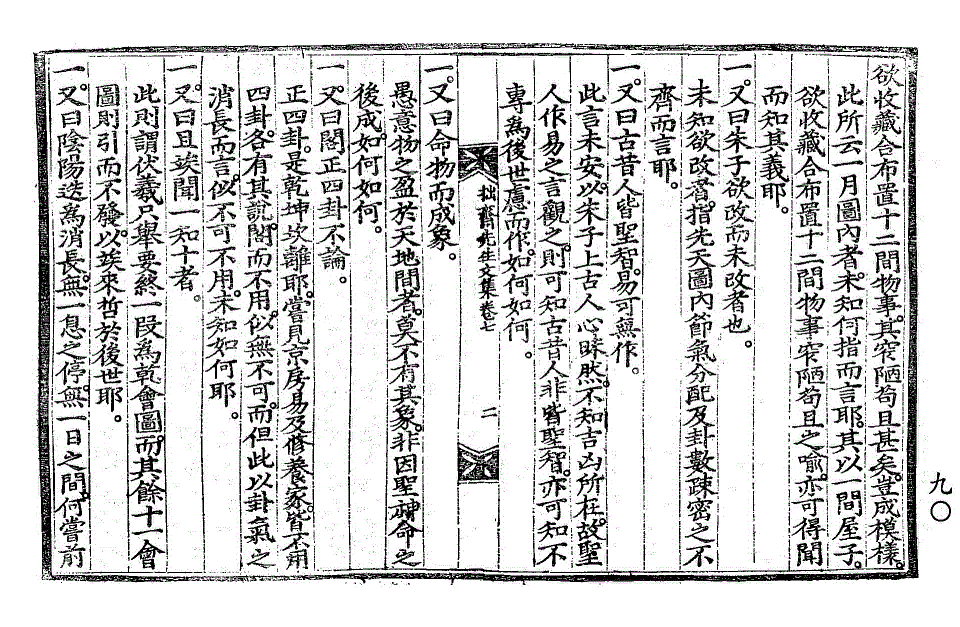 欲收藏合布置十二間物事。其窄陋苟且甚矣。豈成模樣。
此所云一月圖內者。未知何指而言耶。其以一間屋子。
欲收藏合布置十二間物事窄陋苟且之喩。亦可得聞
而知其義耶。
一。又曰朱子欲改而未改者也。
未知欲改者。指先天圖內節氣分配及卦數疎密之不
齊而言耶。
一。又曰古昔人皆聖智。易可無作。
此言未安。以朱子上古人心昧然。不知吉凶所在。故聖
人作易之言觀之。則可知古昔人非皆聖智。亦可知不
專爲後世慮而作。如何如何。
拙齋先生文集卷七
二
一。又曰命物而成象。
愚意物之盈於天地間者。莫不有其象。非因聖神命之
後成。如何如何。
一。又曰閣正四卦不論。
正四卦。是乾坤坎離耶。嘗見京房易及修養家。皆不用
四卦。各有其說。閣而不用。似無不可。而但此以卦氣之
消長而言。似不可不用。未知如何耶。
一。又曰且竢聞一知十者。
此則謂伏羲只舉要終一段爲乾會圖。而其餘十一會
圖則引而不發。以竢來哲於後世耶。
一。又曰陰陽迭爲消長。無一息之停。無一日之間。何嘗前
九〇